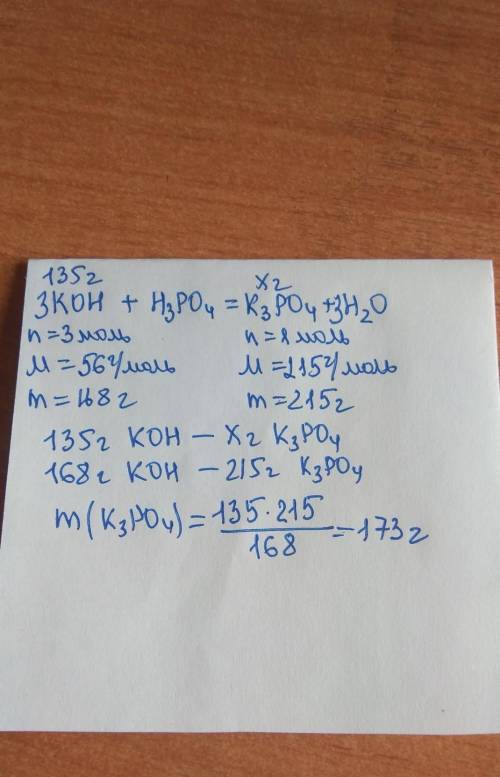 135г хг
3KOH + H₃PO₄ = K₃PO₄ + 3H₂O
n = 3 моль n = 1 моль
M = 56 г/моль M = 215 г/моль
m = 168 г m = 215 г
135г KOH – хг K₃PO₄
168г KOH – 215г K₃PO₄
m(K₃PO₄) = 135·215 / 168 = 173 г